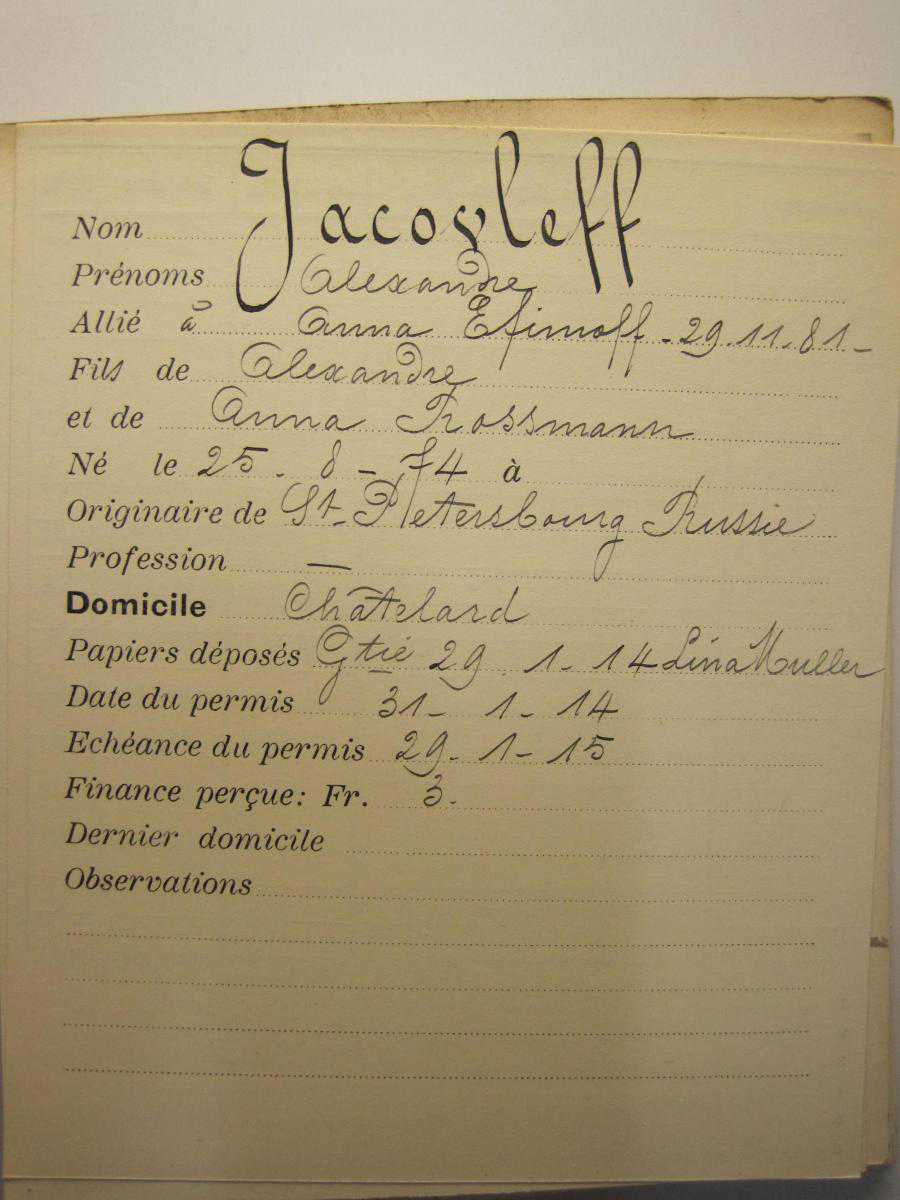 Nom Jacovleff
Prénoms Alexandre
Allié à Anna Efimoff - 29.11.81 -
Fils de Alexandre
et de Anna Rossmann
Né le 25. 8 - 74 à
Originaire de St-Petersbourg Russie
Profession —
Domicile Châtelard
Papiers déposés Gtie 29. 1 - 14 Lina Muller
Date du permis 31 - 1 - 14
Echéance du permis 29. 1 - 15
Finance perçue: Fr. 3.
Dernier domicile
Observations